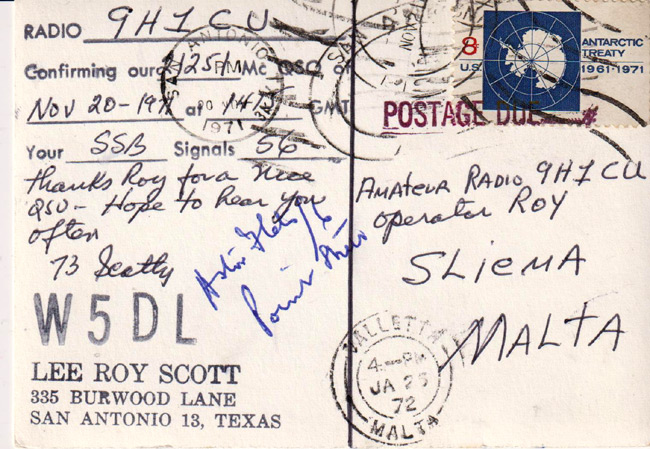 RADIO 9H1CU
Confirming our 21251 Mc QSO of
Nov 20-1971 at GMT
Your SSB Signals 56
thanks Roy for a nice
QSO- Hope to hear you
often
73 Scotty
W5DL
LEE ROY SCOTT
335 BURWOOD LANE
SAN ANTONIO 13, TEXAS
SAN ANTONIO
PM
1971
8¢
U.S.
ANTARCTIC
TREATY
1961-1971
POSTAGE DUE
AMATEUR RADIO 9H1CU
operator ROY
SLiEMA
MALTA
Flats
Point
VALLETTA
4-PM
JA 25
72
MALTA